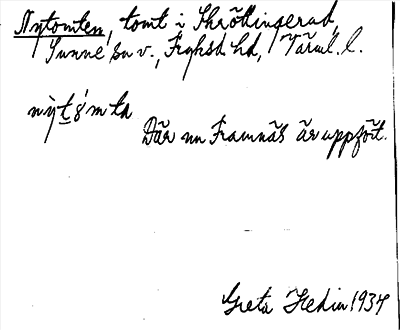 Nytomten, tomt i Skrällingerud,
Sunne sn v., Fryksd. hd, Värml. l.
nỳtǿmta
Där nu Framnäs är uppfört.
Greta Hedin 1934